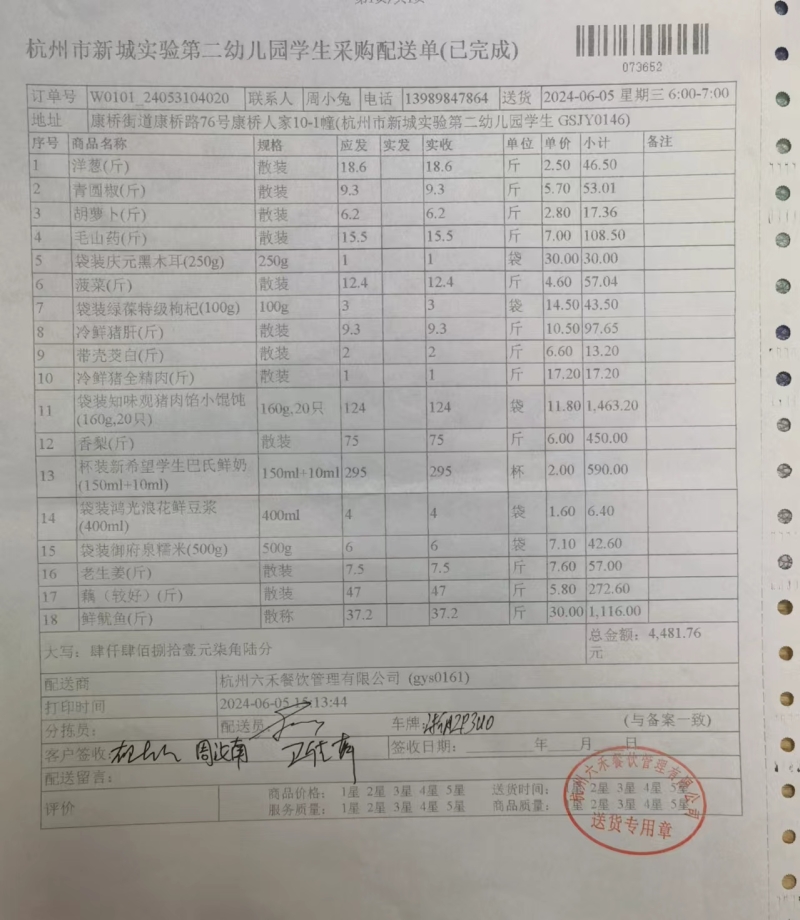 杭州市新城实验第二幼儿园学生采购配送单(已完成)
073652
订单号 W0101_24053104020 联系人 周小兔 电话 13989847864 送货 2024-06-05 星期三 6:00-7:00
地址 康桥街道康桥路76号康桥人家10-1幢(杭州市新城实验第二幼儿园学生 GSJY0146)
序号 商品名称 规格 应发 实发 实收 单位 单价 小计 备注
1 洋葱(斤) 散装 18.6 18.6 斤 2.50 46.50
2 青圆椒(斤) 散装 9.3 9.3 斤 5.70 53.01
3 胡萝卜(斤) 散装 6.2 6.2 斤 2.80 17.36
4 毛山药(斤) 散装 15.5 15.5 斤 7.00 108.50
5 袋装庆元黑木耳(250g) 250g 1 1 袋 30.00 30.00
6 菠菜(斤) 散装 12.4 12.4 斤 4.60 57.04
7 袋装绿葆特级枸杞(100g) 100g 3 3 袋 14.50 43.50
8 冷鲜猪肝(斤) 散装 9.3 9.3 斤 10.50 97.65
9 带壳茭白(斤) 散装 2 2 斤 6.60 13.20
10 冷鲜猪全精肉(斤) 散装 1 1 斤 17.20 17.20
11 袋装知味观猪肉馅小馄饨 160g,20只 124 124 袋 11.80 1,463.20
(160g,20只)
12 香梨(斤) 散装 75 75 斤 6.00 450.00
13 杯装新希望学生巴氏鲜奶 150ml+10ml 295 295 杯 2.00 590.00
(150ml+10ml)
14 袋装鸿光浪花鲜豆浆 400ml 4 4 袋 1.60 6.40
(400ml)
15 袋装御府泉糯米(500g) 500g 6 6 袋 7.10 42.60
16 老生姜(斤) 散装 7.5 7.5 斤 7.60 57.00
17 藕（较好）(斤) 散装 47 47 斤 5.80 272.60
18 鲜鱿鱼(斤) 散称 37.2 37.2 斤 30.00 1,116.00
大写：肆仟肆佰捌拾壹元柒角陆分 总金额：4,481.76
元
配送商 杭州六禾餐饮管理有限公司 (gys0161)
打印时间 2024-06-05 15:13:44
分拣员： 配送员 车牌： (与备案一致)
客户签收： 签收日期： 年 月 日
配送留言：
评价 商品价格： 1星 2星 3星 4星 5星 送货时间： 星 2星 3星 4星 5星
服务质量： 1星 2星 3星 4星 5星 商品质量： 星 2星 3星 4星 5星
杭州六禾餐饮管理有限公司
送货专用章